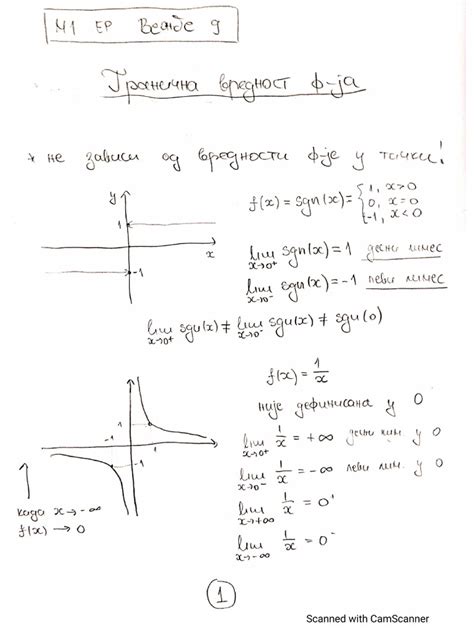 М1 ЕР Вежбе 9
Гранична вредност ф-ја
* не зависи од вредности ф-је у тачки!
y
1
x
-1
f(x) = sgn(x) = { 1, x>0
0, x=0
-1, x<0
lim x→0⁺ sgn(x) = 1 десни лимес
lim x→0⁻ sgn(x) = -1 леви лимес
lim x→0⁺ sgn(x) ≠ lim x→0⁻ sgn(x) ≠ sgn(0)
f(x) = 1/x
није дефинисана у 0
-1
1
1
-1
lim x→0⁺ 1/x = +∞ десни лим. у 0
lim x→0⁻ 1/x = -∞ леви лим. у 0
lim x→+∞ 1/x = 0⁺
lim x→-∞ 1/x = 0⁻
када x → -∞
f(x) → 0
1
Scanned with CamScanner